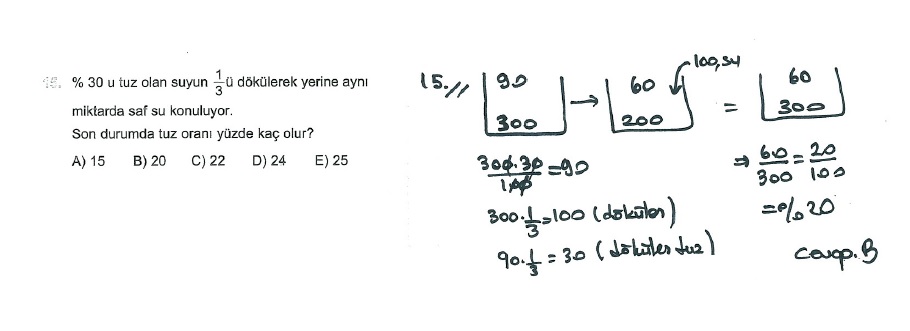 15. % 30 u tuz olan suyun 1/3 ü dökülerek yerine aynı
miktarda saf su konuluyor.
Son durumda tuz oranı yüzde kaç olur?
A) 15 B) 20 C) 22 D) 24 E) 25
15.//
90
300
→
60
200
100, su
=
60
300
300.30/100 = 90
300.1/3 = 100 (dökülen)
90.1/3 = 30 (dökülen tuz)
⇒ 60/300 = 20/100
= % 20
Cevap. B